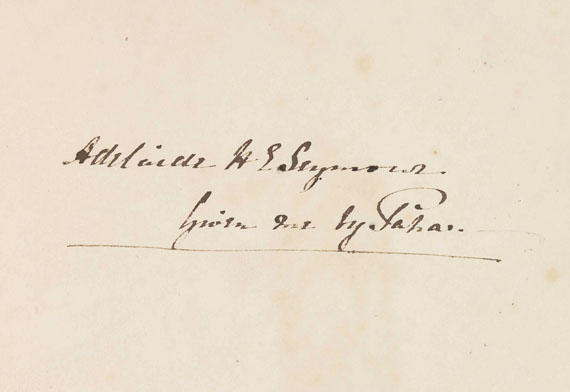 Adelaide H E Seymour.
Given me by Papa.